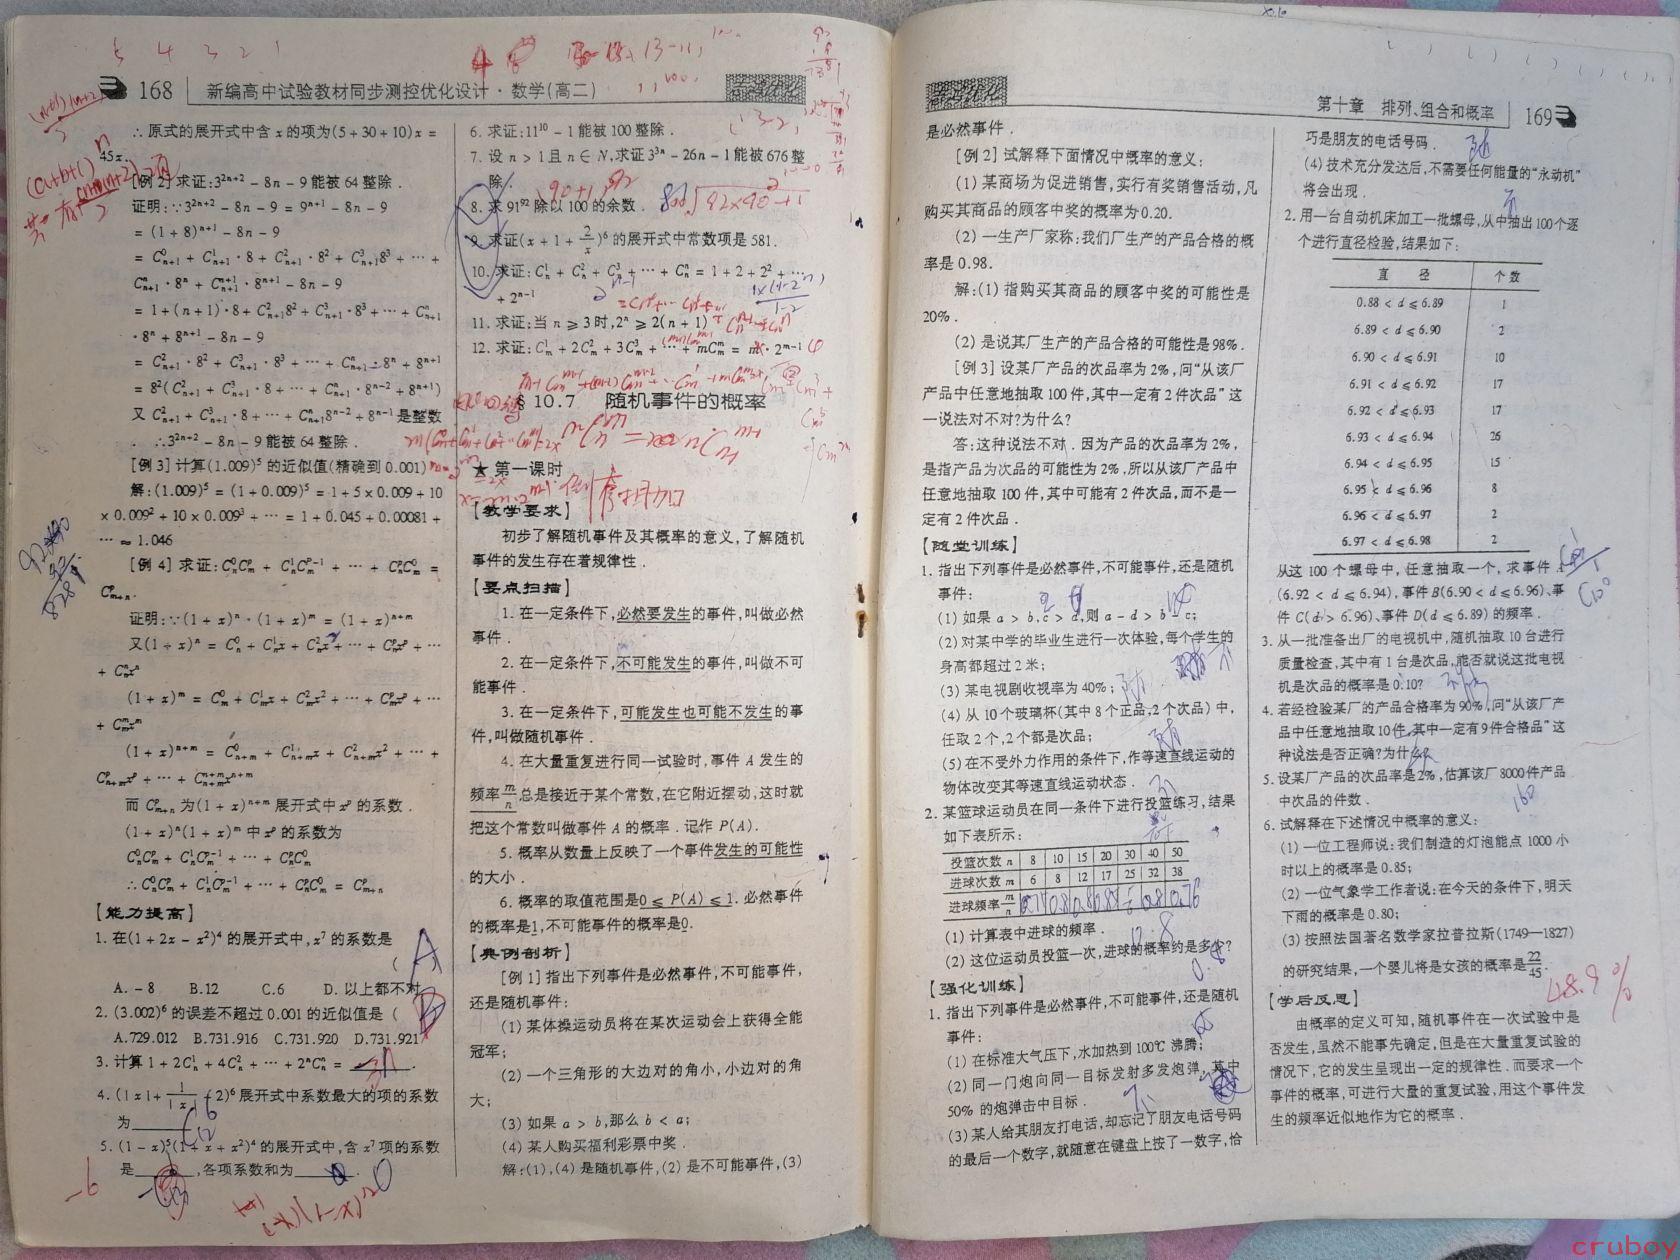 168 新编高中试验教材同步测控优化设计·数学(高二)
∴原式的展开式中含 x 的项为(5+30+10)x =
45x.
[例2]求证:3²ⁿ⁺² - 8n - 9能被64整除.
证明:∵3²ⁿ⁺² - 8n - 9 = 9ⁿ⁺¹ - 8n - 9
= (1+8)ⁿ⁺¹ - 8n - 9
= C⁰ₙ₊₁ + C¹ₙ₊₁·8 + C²ₙ₊₁·8² + C³ₙ₊₁8³ + ⋯ +
Cⁿₙ₊₁·8ⁿ + Cⁿ⁺¹ₙ₊₁·8ⁿ⁺¹ - 8n - 9
= 1 + (n+1)·8 + C²ₙ₊₁8² + C³ₙ₊₁·8³ + ⋯ + Cⁿₙ₊₁
·8ⁿ + 8ⁿ⁺¹ - 8n - 9
= C²ₙ₊₁·8² + C³ₙ₊₁·8³ + ⋯ + Cⁿₙ₊₁·8ⁿ + 8ⁿ⁺¹
= 8²(C²ₙ₊₁ + C³ₙ₊₁·8 + ⋯ + Cⁿₙ₊₁·8ⁿ⁻² + 8ⁿ⁻¹)
又 C²ₙ₊₁ + C³ₙ₊₁·8 + ⋯ + Cⁿₙ₊₁8ⁿ⁻² + 8ⁿ⁻¹是整数
.∴3²ⁿ⁺² - 8n - 9能被64整除.
[例3]计算(1.009)⁵的近似值(精确到0.001)
解:(1.009)⁵ = (1+0.009)⁵ = 1 + 5×0.009 + 10
×0.009² + 10×0.009³ + ⋯ = 1 + 0.045 + 0.00081 +
⋯ ≈ 1.046
[例4]求证:C⁰ₙCᵖₘ + C¹ₙCᵖ⁻¹ₘ + ⋯ + CᵖₙC⁰ₘ =
Cᵖₘ₊ₙ.
证明:∵(1+x)ⁿ·(1+x)ᵐ = (1+x)ⁿ⁺ᵐ
又(1+x)ⁿ = C⁰ₙ + C¹ₙx + C²ₙx² + ⋯ + Cᵖₙxᵖ + ⋯
+ Cⁿₙxⁿ
(1+x)ᵐ = C⁰ₘ + C¹ₘx + C²ₘx² + ⋯ + Cᵖₘxᵖ + ⋯
+ Cᵐₘxᵐ
(1+x)ⁿ⁺ᵐ = C⁰ₙ₊ₘ + C¹ₙ₊ₘx + C²ₙ₊ₘx² + ⋯ +
Cᵖₙ₊ₘxᵖ + ⋯ + Cⁿ⁺ᵐₙ₊ₘxⁿ⁺ᵐ
而 Cᵖₘ₊ₙ为(1+x)ⁿ⁺ᵐ展开式中xᵖ的系数.
(1+x)ⁿ(1+x)ᵐ中xᵖ的系数为
C⁰ₙCᵖₘ + C¹ₙCᵖ⁻¹ₘ + ⋯ + CᵖₙC⁰ₘ
∴C⁰ₙCᵖₘ + C¹ₙCᵖ⁻¹ₘ + ⋯ + CᵖₙC⁰ₘ = Cᵖₘ₊ₙ
【能力提高】
1. 在(1+2x-x²)⁴的展开式中,x⁷的系数是
( A )
A. -8 B.12 C.6 D. 以上都不对
2. (3.002)⁶的误差不超过0.001的近似值是( B
A.729.012 B.731.916 C.731.920 D.731.921
3. 计算1 + 2C¹ₙ + 4C²ₙ + ⋯ + 2ⁿCⁿₙ = 3ⁿ.
4. (|x| + 1/|x| + 2)⁶展开式中系数最大的项的系数
为
5. (1-x)⁵(1+x+x²)⁴的展开式中,含x⁷项的系数
是 ,各项系数和为 0
-6
6. 求证:11¹⁰ - 1能被100整除.
7. 设 n > 1且 n ∈ N,求证3³ⁿ - 26n - 1能被676整
除.
8. 求91⁹²除以100的余数.
9. 求证(x + 1 + 2/x)⁶的展开式中常数项是581.
10. 求证:C¹ₙ + C²ₙ + C³ₙ + ⋯ + Cⁿₙ = 1 + 2 + 2² + ⋯
+ 2ⁿ⁻¹
11. 求证:当 n ⩾ 3时,2ⁿ ⩾ 2(n+1)
12. 求证:C¹ₘ + 2C²ₘ + 3C³ₘ + ⋯ + mCᵐₘ = m·2ᵐ⁻¹
§10.7 随机事件的概率
★第一课时
【教学要求】
初步了解随机事件及其概率的意义,了解随机
事件的发生存在着规律性.
【要点扫描】
1. 在一定条件下,必然要发生的事件,叫做必然
事件.
2. 在一定条件下,不可能发生的事件,叫做不可
能事件.
3. 在一定条件下,可能发生也可能不发生的事
件,叫做随机事件.
4. 在大量重复进行同一试验时,事件 A 发生的
频率m/n总是接近于某个常数,在它附近摆动,这时就
把这个常数叫做事件 A 的概率.记作 P(A).
5. 概率从数量上反映了一个事件发生的可能性
的大小.
6. 概率的取值范围是0 ⩽ P(A) ⩽ 1. 必然事件
的概率是1,不可能事件的概率是0.
【典例剖析】
[例1]指出下列事件是必然事件,不可能事件,
还是随机事件:
(1) 某体操运动员将在某次运动会上获得全能
冠军;
(2) 一个三角形的大边对的角小,小边对的角
大;
(3) 如果 a > b,那么 b < a;
(4) 某人购买福利彩票中奖.
解:(1),(4)是随机事件,(2)是不可能事件,(3)
第十章 排列、组合和概率 169
是必然事件.
[例2]试解释下面情况中概率的意义:
(1) 某商场为促进销售,实行有奖销售活动,凡
购买其商品的顾客中奖的概率为0.20.
(2) 一生产厂家称:我们厂生产的产品合格的概
率是0.98.
解:(1) 指购买其商品的顾客中奖的可能性是
20%.
(2) 是说其厂生产的产品合格的可能性是98%.
[例3]设某厂产品的次品率为2%,问“从该厂
产品中任意地抽取100件,其中一定有2件次品”这
一说法对不对?为什么?
答:这种说法不对.因为产品的次品率为2%,
是指产品为次品的可能性为2%,所以从该厂产品中
任意地抽取100件,其中可能有2件次品,而不是一
定有2件次品.
【随堂训练】
1. 指出下列事件是必然事件,不可能事件,还是随机
事件:
(1) 如果 a > b,c > d,则 a - d > b - c;
(2) 对某中学的毕业生进行一次体验,每个学生的
身高都超过2米;
(3) 某电视剧收视率为40%;
(4) 从10个玻璃杯(其中8个正品,2个次品)中,
任取2个,2个都是次品;
(5) 在不受外力作用的条件下,作等速直线运动的
物体改变其等速直线运动状态.
2. 某篮球运动员在同一条件下进行投篮练习,结果
如下表所示:
投篮次数 n 8 10 15 20 30 40 50
进球次数 m 6 8 12 17 25 32 38
进球频率 m/n
(1) 计算表中进球的频率.
(2) 这位运动员投篮一次,进球的概率约是多少?
0.8
【强化训练】
1. 指出下列事件是必然事件,不可能事件,还是随机
事件:
(1) 在标准大气压下,水加热到100℃沸腾;
(2) 同一门炮向同一目标发射多发炮弹,其中
50%的炮弹击中目标.
(3) 某人给其朋友打电话,却忘记了朋友电话号码
的最后一个数字,就随意在键盘上按了一数字,恰
巧是朋友的电话号码.
(4) 技术充分发达后,不需要任何能量的“永动机”
将会出现.
2. 用一台自动机床加工一批螺母,从中抽出100个逐
个进行直径检验,结果如下:
直 径 个数
0.88 < d ⩽ 6.89 1
6.89 < d ⩽ 6.90 2
6.90 < d ⩽ 6.91 10
6.91 < d ⩽ 6.92 17
6.92 < d ⩽ 6.93 17
6.93 < d ⩽ 6.94 26
6.94 < d ⩽ 6.95 15
6.95 < d ⩽ 6.96 8
6.96 < d ⩽ 6.97 2
6.97 < d ⩽ 6.98 2
从这100个螺母中,任意抽取一个,求事件
(6.92 < d ⩽ 6.94),事件B(6.90 < d ⩽ 6.96)、事
件 C(d > 6.96)、事件 D(d ⩽ 6.89)的频率.
3. 从一批准备出厂的电视机中,随机抽取10台进行
质量检查,其中有1台是次品,能否就说这批电视
机是次品的概率是0.10?
4. 若经检验某厂的产品合格率为90%,问“从该厂产
品中任意地抽取10件,其中一定有9件合格品”这
种说法是否正确?为什么?
5. 设某厂产品的次品率是2%,估算该厂8000件产品
中次品的件数. 160
6. 试解释在下述情况中概率的意义:
(1) 一位工程师说:我们制造的灯泡能点1000小
时以上的概率是0.85;
(2) 一位气象学工作者说:在今天的条件下,明天
下雨的概率是0.80;
(3) 按照法国著名数学家拉普拉斯(1749—1827)
的研究结果,一个婴儿将是女孩的概率是22/45.
48.9%
【学后反思】
由概率的定义可知,随机事件在一次试验中是
否发生,虽然不能事先确定,但是在大量重复试验的
情况下,它的发生呈现出一定的规律性.而要求一个
事件的概率,可进行大量的重复试验,用这个事件发
生的频率近似地作为它的概率.
cruboy